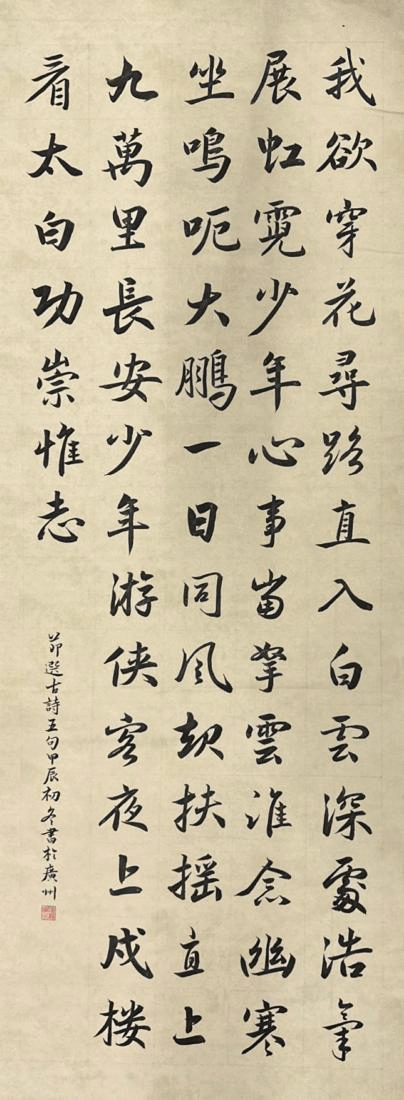 我欲穿花尋路直入白雲深處浩氣
展虹霓少年心事當拏雲誰念幽寒
坐嗚呃大鵬一日同風起扶摇直上
九萬里長安少年游俠客夜上戍楼
看太白功崇惟志
節選古詩五句甲辰初冬書於廣州